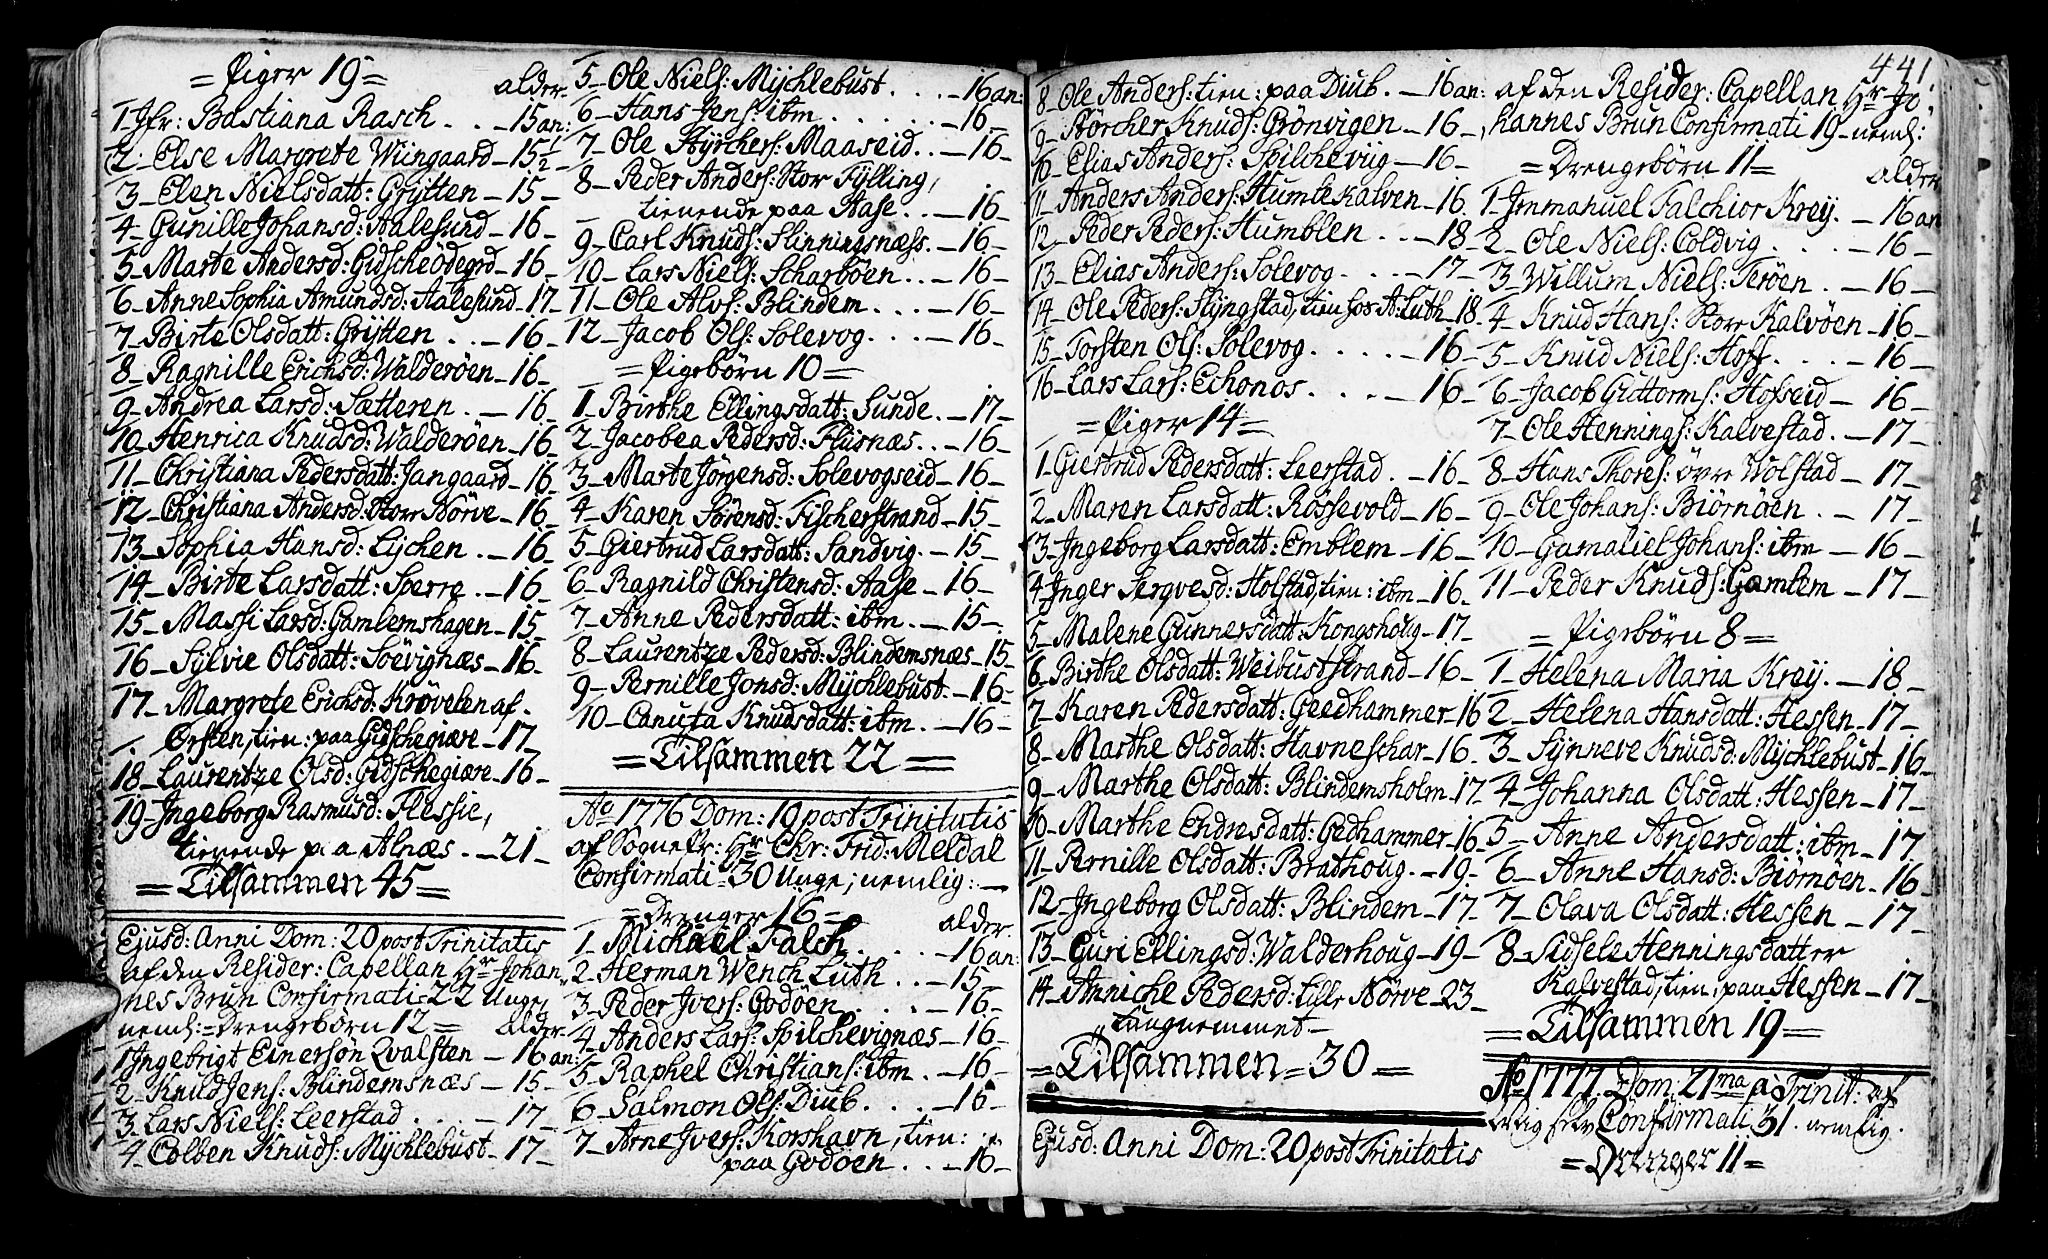 = Piger 19 =
alder.
1- Jfr: Bastiana Rasch . . - 15 an:
2- Else Margrete Wiingaard - 15½
3- Elen Nielsdatt: Grytten - 15 -
4- Gunille Johansd: Aalesund - 16 -
5- Marte Andersd: Gidscheödegrd - 16 -
6- Anne Sophia Amundsd: Aalesund - 17 -
7- Birte Olsdatt: Grytten . . - 16 -
8- Ragnille Erichsd: Walderöen - 16 -
9- Andrea Larsd: Sætteren . - 16 -
10- Henrica Knudsd: Walderöen - 16 -
11- Christiana Pedersdatt: Jangaard - 16 -
12- Christiana Andersd: Store Nörve - 16 -
13- Sophia Hansd: Lychen . - 16 -
14- Birte Larsdatt: Sperre . - 16 -
15- Massi Larsd: Gamlemshagen - 15 -
16- Sylvie Olsdatt: Soëvignæs - 16 -
17- Margrete Erichsd: Krövelen af
Örsten, tien: paa Gidschegiære - 17 -
18- Laurentze Olsd: Gidschegiære - 16 -
19- Ingeborg Rasmusd: Flessie,
tienende paa Alnæs . - 21 -
= Tilsammen 45 =
Ejusd: Anni Dom: 20 post Trinitatis
af den Resider: Capellan Hr Johan,
nes Brun Confirmati 22 Unge,
neml: = Drengebörn 12 = alder.
1 Ingebrigt Einersön Qvalsten - 16 an:
2- Knud Jens: Blindemsnæs - 15 -
3- Lars Niels: Leerstad . . . - 17 -
4- Colben Knuds: Mychlebust - 17 -
5- Ole Niels: Mychlebust . . . - 16 an:
6- Hans Jens: ibm . . . . . . - 16 -
7- Ole Styrchers: Maaseid . . - 16 -
8- Peder Anders: Stor Tylling,
tienende paa Aase . . - 16 -
9- Carl Knuds: Slinningsnæss. - 16 -
10- Lars Niels: Scharböen . . - 16 -
11- Ole Alvs: Blindem . . . - 16 -
12- Jacob Ols: Solevog . . . - 16 -
= Pigebörn 10 =
1- Birthe Ellingsdatt: Sunde . - 17 -
2- Jacobea Pedersd: Flisnæs . . - 16 -
3- Marte Jörgensd: Solevogseid - 16 -
4- Karen Sörensd: Fischerstrand - 15 -
5- Giertrud Larsdatt: Sandvig . - 15 -
6- Ragnild Christensd: Aase - 16 -
7- Anne Pedersdatt: ibm . - 15 -
8- Laurentze Pedersd: Blindemsnæs - 15 -
9- Pernille Jonsd: Mychlebust . - 16 -
10- Canuta Knudsdatt: ibm . - 16 -
= Tilsammen 22 =
Ao 1776 Dom: 19 post Trinitatis
af SognePr: Hr Chr: Frid: Meldal
Confirmati 30 Unge; nemlig: -
= Drenger 16 =
alder.
1- Michäel Falch . . . . - 16 an:
2- Herman Wench Luth . . - 15 -
3- Peder Ivers: Godöen . . . - 16 -
4- Anders Lars: Spilchevignæs - 16 -
5- Raphel Christians: ibm . - 16 -
6- Salmon Ols: Diub . . . - 16 -
7- Arne Ivers: Korshavn, tien:
paa Godöen . . - 16 -
8- Ole Anders: tien: paa Diub . - 16 an:
9- Störcher Knuds: Grönvigen - 16 -
10- Elias Anders: Spilcheviig - 16 -
11- Anders Anders: Humlekalven - 16
12- Peder Peders: Humblen . . - 18 -
13- Elias Anders: Solevog . . . - 17 -
14- Ole Peders: Slyngstad, tien hos A: Luth - 18
15- Torsten Ols: Solevog . . . . - 16 -
16- Lars Lars: Echonos . . . - 16 -
= Piger 14 =
1- Giertrud Pedersdatt: Leerstad . - 16 -
2- Maren Larsdatt: Rössevold - 16 -
3- Ingeborg Larsdatt: Emblem - 16 -
4- Inger Sergvesd: Holstad, tien: ibm - 16 -
5- Malene Gunnersdatt: Kongshoug - 17 -
6- Birthe Olsdatt: Weibuststrand - 16 -
7- Karen Pedersdatt: Geedhammer - 16
8- Marthe Olsdatt: Havneschar - 16
9- Marthe Olsdatt: Blindemsholm - 17
10- Marthe Endresdatt: Gedhammer - 16
11- Pernille Olsdatt: Brathoug . - 19 -
12- Ingeborg Olsdatt: Blindem - 17 -
13- Guri Ellingsd: Walderhoug - 19 -
14- Anniche Pedersd: Lille Nörve - 23 -
tungnemmet -
= Tilsammen = 30 =
Ejusd: Anni Dom: 20 post Trinitatis
441
af den Resider: Capellan Hr Jo,
hannes Brun Confirmati 19 - neml:
= Drengebörn 11 =
alder
1- Immanuel Falchior Krey . - 16 an
2- Ole Niels: Coldvig . . . . - 16 -
3- Willum Niels: Teröen . - 16 -
4- Knud Hans: Store Kalvöen - 16 -
5- Knud Niels: Hoff . . . . - 16 -
6- Jacob Guttorms: Hofseid - 16 -
7- Ole Hennings: Kalvestad . - 17 -
8- Hans Thores: övre Wolstad - 17 -
9- Ole Johans: Biörnöen . - 17 -
10- Gamaliel Johans: ibm - 16 -
11- Peder Knuds: Gamlem - 17 -
= Pigebörn 8 =
1- Helena Maria Krey . - 18 -
2- Helena Hansdatt: Hessen - 17 -
3- Synneve Knudsd: Mychlebust - 16 -
4- Johanna Olsdatt: Hessen - 17 -
5- Anne Andersdatt: ibm - 17
6- Anne Hansd: Biörnöen - 16 -
7- Olava Olsdatt: Hessen - 17 -
8- Sidsele Henningsdatter
Kalvestad, tien: paa Hessen - 17 -
= Tilsammen 19 =
Ao 1777. Dom: 21ma p Trinit: af
selv Confirmati 31. nemlig.
= Drenger 11 =